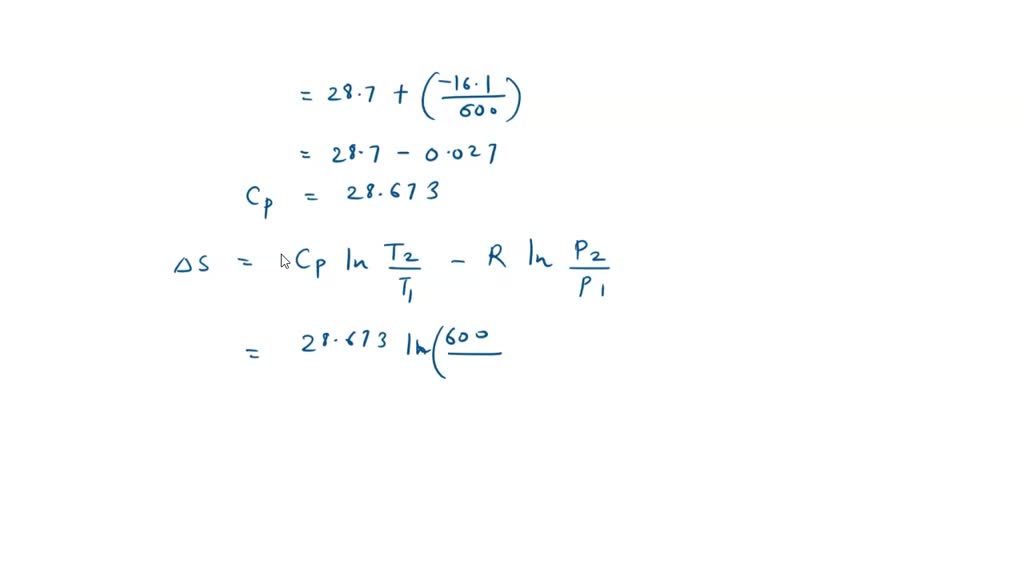 = 28.7 + (-16.1/600)
= 28.7 - 0.027
Cp = 28.673
ΔS = Cp ln T2/T1 - R ln P2/P1
= 28.673 ln(600